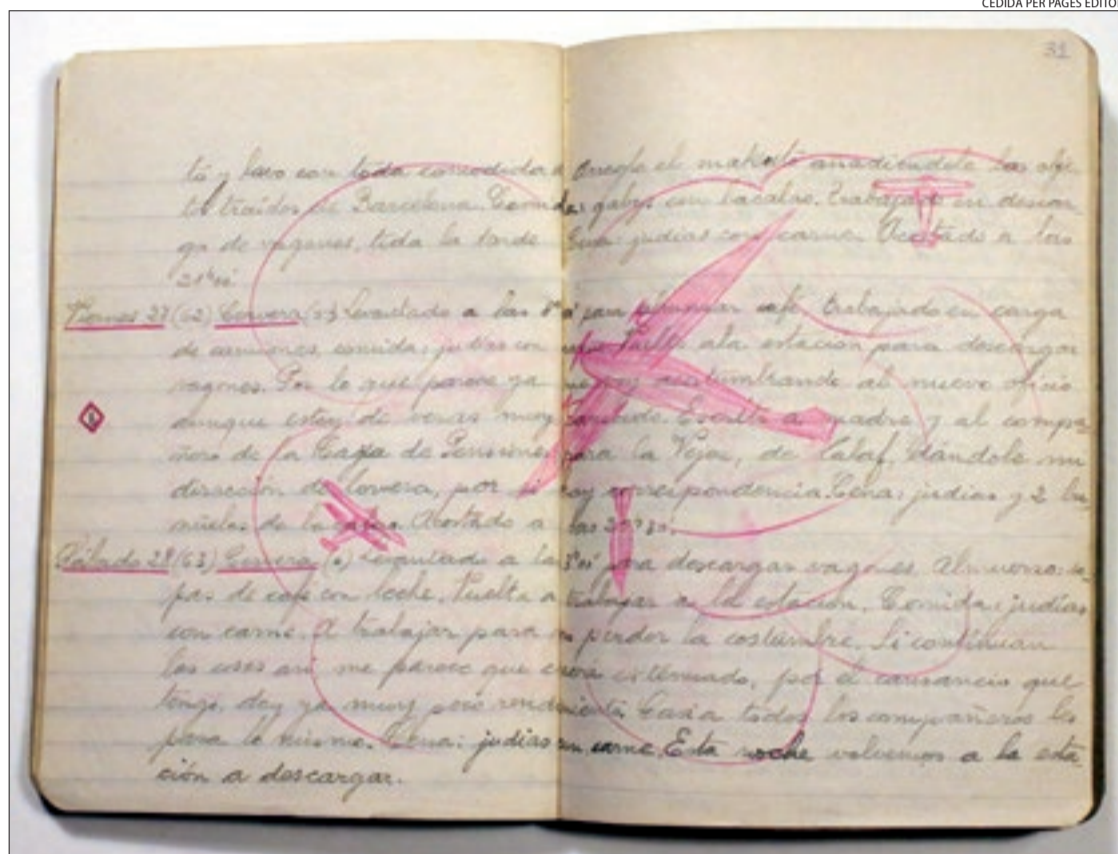 CEDIDA PER PAGÈS EDITO
31
tó y lavo con toda comodidad. Arreglo el maletí añadiéndole los obje
tos traídos de Barcelona. Comida: con bacalao. Trabajado en descar
ga de vagones, toda la tarde. Cena: judías con carne. Acostado a las
21h
Viernes 27 (62) Cervera Levantado a las para almorzar café trabajado en carga
de camiones, comida: judías con Vuelta a la estación para descargar
vagones. Por lo que parece ya me voy acostumbrando al nuevo oficio
aunque estoy de veras muy cansado. Escrito a madre y al compa
ñero de la Caja de Pensiones para la Vejez, de Calaf, dándole mi
dirección de Cervera, por si hay correspondencia. Cena: judías y 2 bu
ñuelos de bacalao. Acostado a las
Sábado 28 (63) Cervera Levantado a las para descargar vagones. Almuerzo: so
pas de café con leche. Vuelta a trabajar a la estación. Comida: judías
con carne. A trabajar para no perder la costumbre. Si continúan
las cosas así me parece que extenuado, por el cansancio que
tengo, doy ya muy poco rendimiento. Casi a todos los compañeros les
pasa lo mismo. Cena: judías con carne. Esta noche volvemos a la esta
ción a descargar.